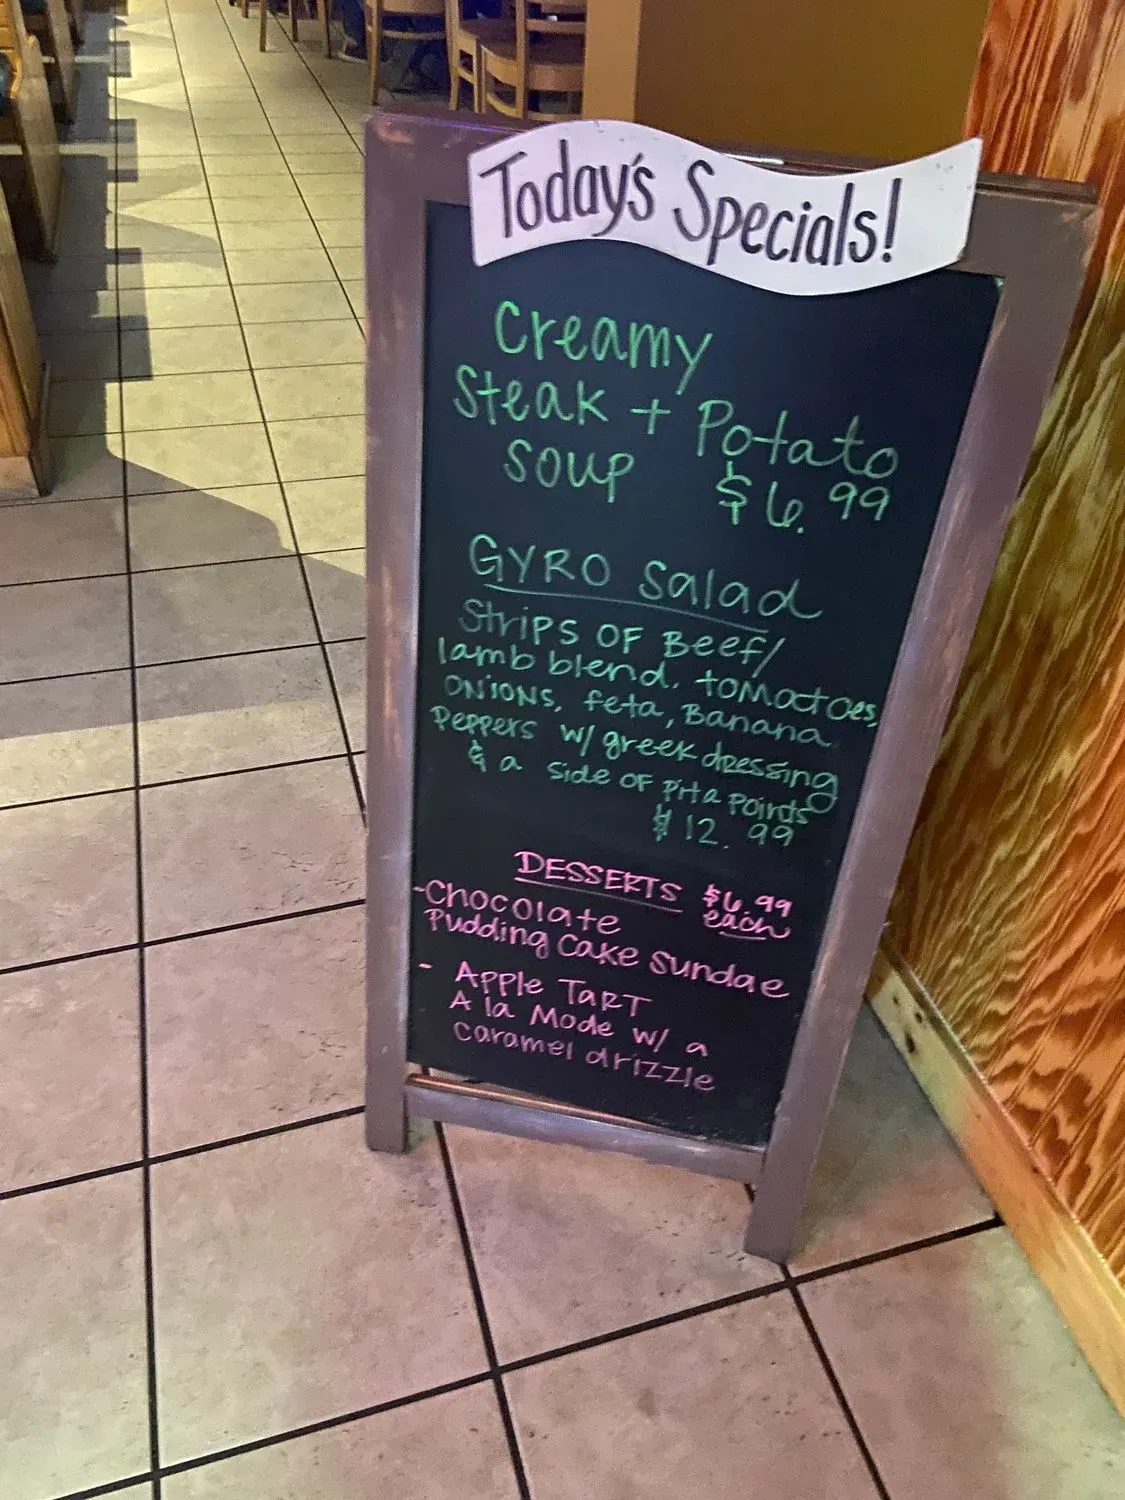 Today's Specials!
Creamy
Steak + Potato
Soup $6.99
GYRO Salad
Strips OF Beef/
lamb blend, tomatoes,
ONIONS, feta, Banana
Peppers w/ greek dressing
& a side OF Pita Points
$12.99
DESSERTS $6.99
each
-Chocolate
Pudding Cake Sundae
- Apple TART
A la Mode w/ a
caramel drizzle